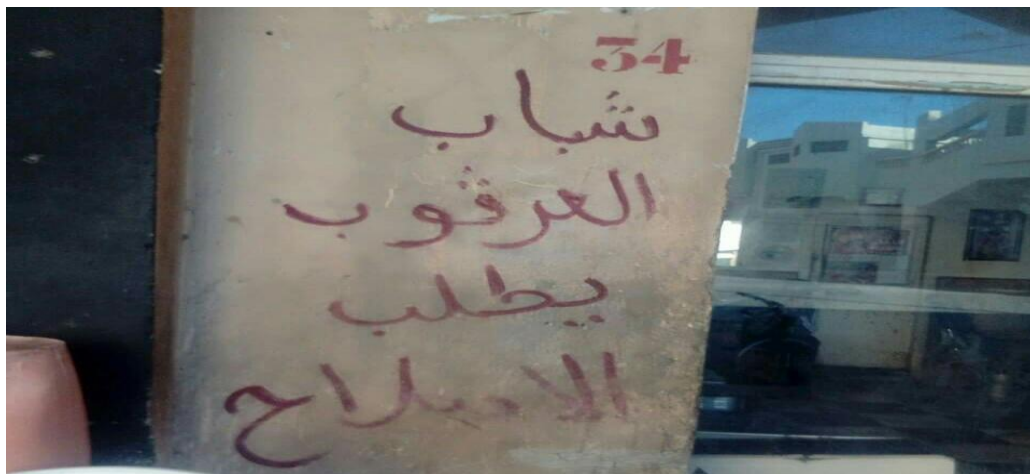 34
شباب
العرقوب
يطلب
الاصلاح